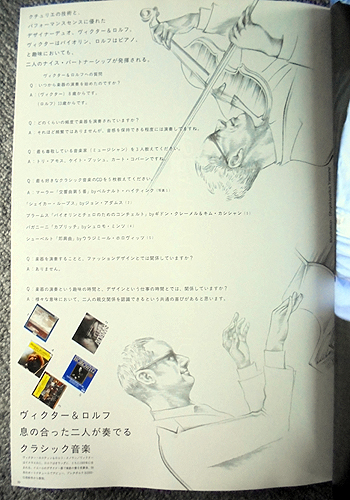 クチュリエの技術と、
パフォーマンスセンスに優れた
デザイナーデュオ、ヴィクター＆ロルフ。
ヴィクターはバイオリン、ロルフはピアノ。
と趣味においても、
二人のナイス・パートナーシップが発揮される。
ヴィクター＆ロルフへの質問
Q いつから楽器の演奏を始めたのですか？
A （ヴィクター）8歳からです。
（ロルフ）13歳からです。
Q どのくらいの頻度で楽器を演奏されていますか？
A それほど頻繁ではありませんが、音感を保持できる程度には演奏してますね。
Q 最も尊敬している音楽家（ミュージシャン）を3人教えてください。
A トリ・アモス、ケイト・ブッシュ、カート・コバーンですね。
Q 最も好きなクラシック音楽のCDを5枚教えてください。
A マーラー「交響曲第5番」byベルナルト・ハイティンク
「シェイカー・ループス」byジョン・アダムス
ブラームス「バイオリンとチェロのためのコンチェルト」byギドン・クレーメル＆キム・カシシャン
パガニーニ「カプリッチ」byシュロモ・ミンツ
シューベルト「即興曲」byウラジミール・ホロヴィッツ
Q 楽器を演奏することと、ファッションデザインとでは関係していますか？
A ありません。
Q 楽器の演奏という趣味の時間と、デザインという仕事の時間とでは、関係していますか？
A 様々な意味において、二人の相互関係を認識できるという共通の喜びがあると思います。
ヴィクター＆ロルフ
息の合った二人が奏でる
クラシック音楽